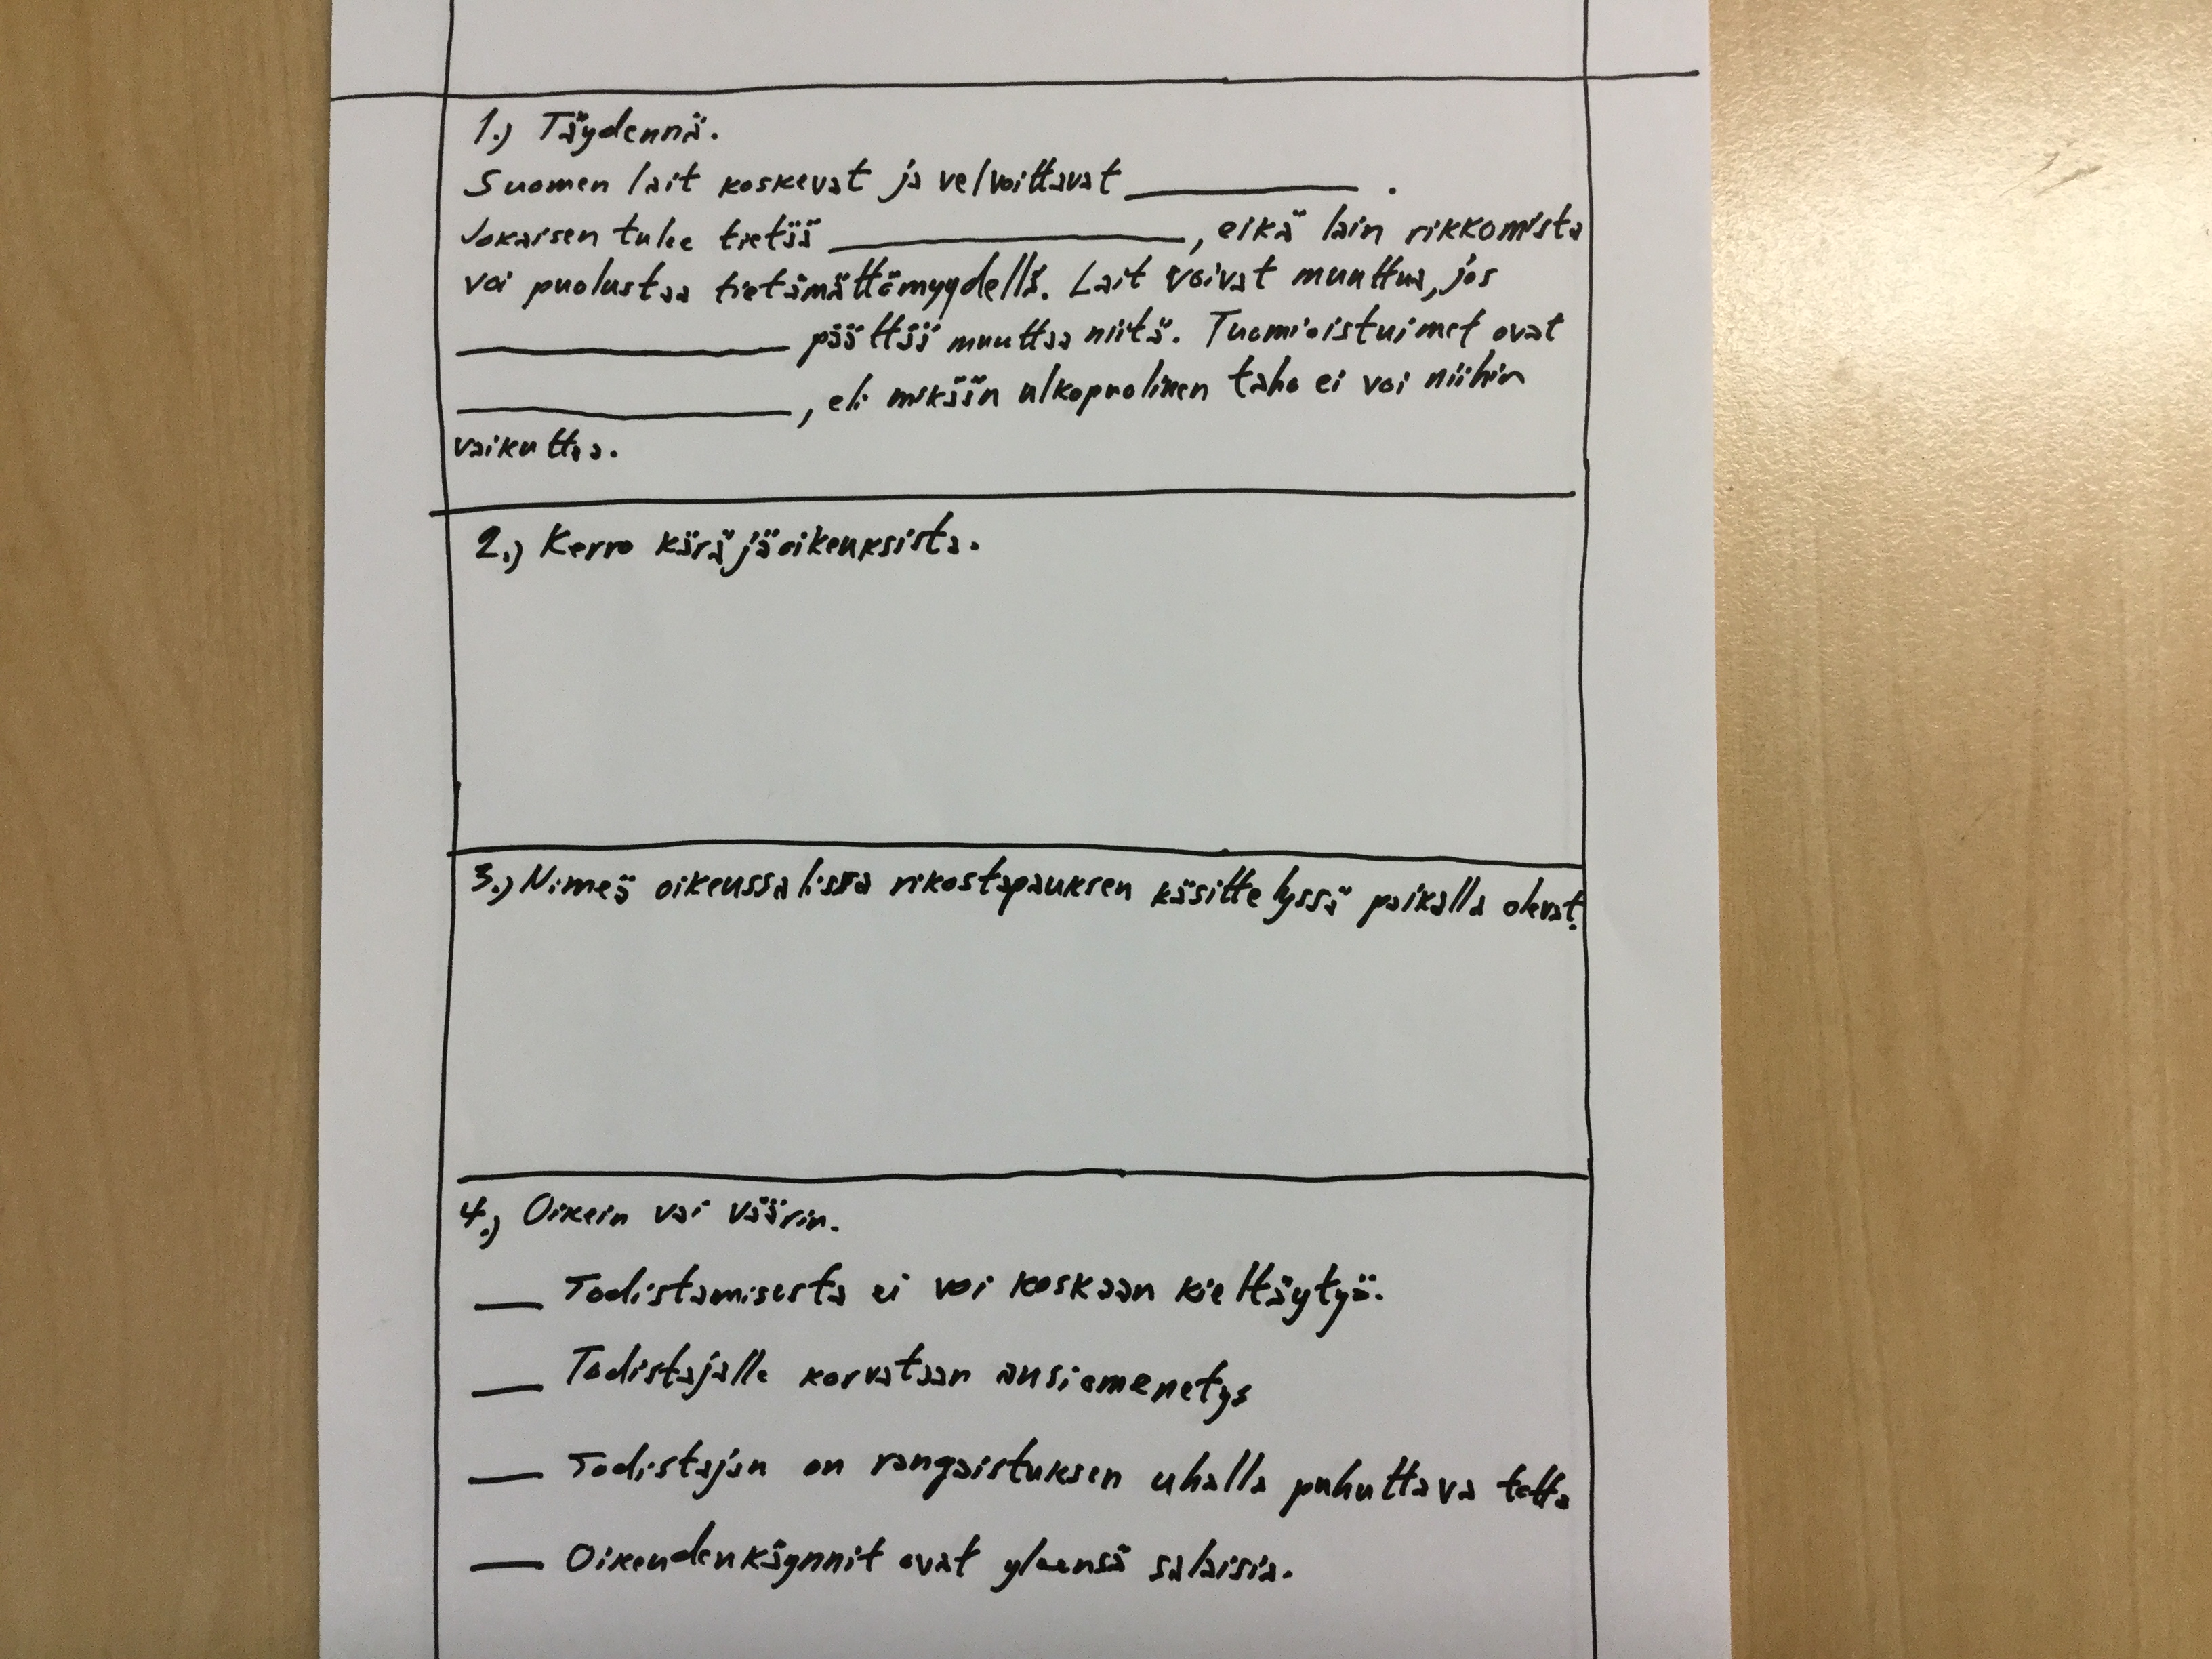 1.) Täydennä.
Suomen lait koskevat ja velvoittavat ________ .
Jokaisen tulee tietää ____________, eikä lain rikkomista
voi puolustaa tietämättömyydellä. Lait voivat muuttua, jos
___________ päättää muuttaa niitä. Tuomioistuimet ovat
___________, eli mikään ulkopuolinen taho ei voi niihin
vaikuttaa.
2.) Kerro käräjäoikeuksista.
3.) Nimeä oikeussalissa rikostapauksen käsittelyssä paikalla olevat.
4.) Oikein vai väärin.
__ Todistamisesta ei voi koskaan kieltäytyä.
__ Todistajalle korvataan ansiomenetys
__ Todistajan on rangaistuksen uhalla puhuttava totta
__ Oikeudenkäynnit ovat yleensä salaisia.